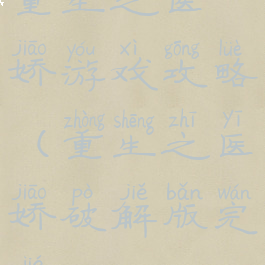 重生之医
jiāo yóu xì gōng lüè
娇游戏攻略
zhòng shēng zhī yī
（重生之医
jiāo pò jiě bǎn wán
娇破解版完
jié